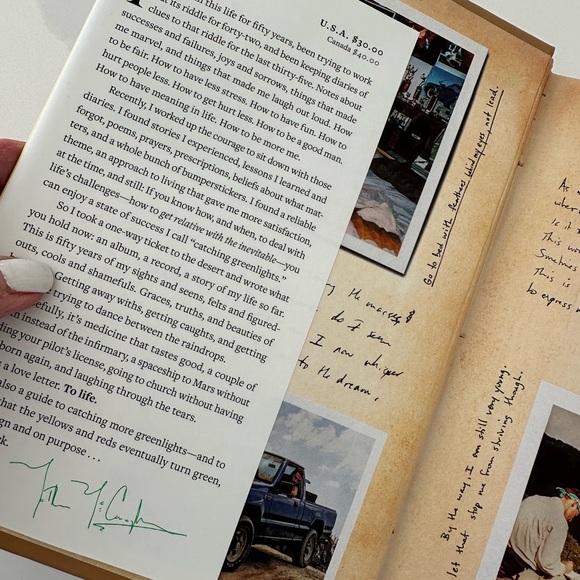 U.S.A. $30.00
Canada $40.00
this life for fifty years, been trying to work
its riddle for forty-two, and been keeping diaries of
clues to that riddle for the last thirty-five. Notes about
successes and failures, joys and sorrows, things that made
me marvel, and things that made me laugh out loud. How
to be fair. How to have less stress. How to have fun. How to
hurt people less. How to get hurt less. How to be a good man.
How to have meaning in life. How to be more me.
Recently, I worked up the courage to sit down with those
diaries. I found stories I experienced, lessons I learned and
forgot, poems, prayers, prescriptions, beliefs about what mat-
ters, and a whole bunch of bumperstickers. I found a reliable
theme, an approach to living that gave me more satisfaction,
at the time, and still: If you know how, and when, to deal with
life's challenges—how to get relative with the inevitable—you
can enjoy a state of success I call “catching greenlights.”
So I took a one-way ticket to the desert and wrote what
you hold now: an album, a record, a story of my life so far.
This is fifty years of my sights and seens, felts and figured-
outs, cools and shamefuls. Graces, truths, and beauties of
Getting away withs, getting caughts, and getting
trying to dance between the raindrops.
efully, it's medicine that tastes good, a couple of
instead of the infirmary, a spaceship to Mars without
ding your pilot's license, going to church without having
born again, and laughing through the tears.
a love letter. To life.
also a guide to catching more greenlights—and to
that the yellows and reds eventually turn green,
ign and on purpose . . .
k.
Go to bed with feathers behind my eyes, not lead.
the masses &
do I seem
I now whisper
to the dream.
By the way, I am still very young.
let that stop me from striving though.
As
wher
Is it
This wr
Sometimes
This is
to express